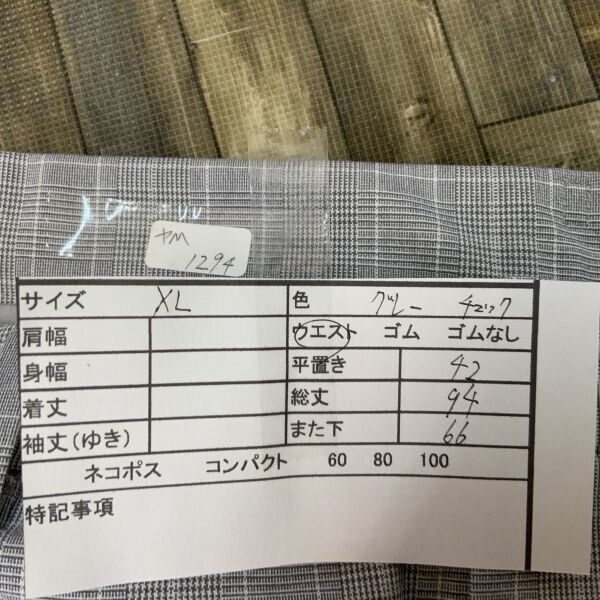 ヤM
1294
サイズ XL 色 グレー チェック
肩幅 ウエスト ゴム ゴムなし
身幅 平置き 42
着丈 総丈 94
袖丈(ゆき) また下 66
ネコポス コンパクト 60 80 100
特記事項